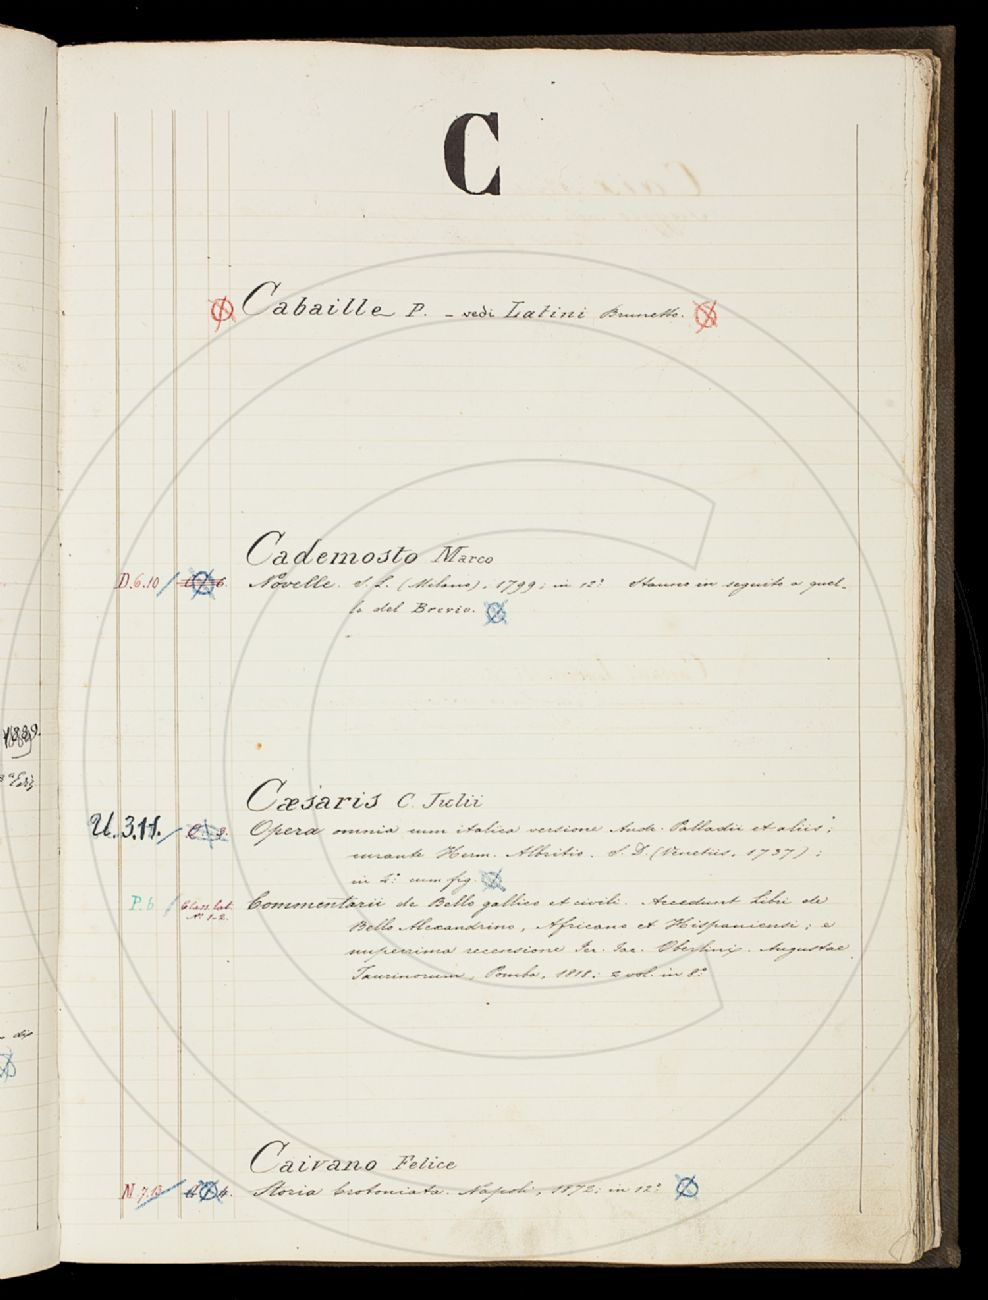 C
Cabaille P. - vedi Latini Brunetto.
Cademosto Marco
D.6.10 Novelle. S. L. (Milano), 1799; in 12º Stanno in seguito a quel-
le del Brevio.
Cæsaris C. Julii
U.3.11. Opera omnia cum italica versione Andr. Palladii et aliis;
curante Herm. Albritio. S. D. (Venetiis, 1737);
in 4º cum fig.
P.6 Class. lat. Commentarii de Bello gallico et civili. Accedunt Libri de
Nº 1-2. Bello Alexandrino, Africano et Hispaniensi; e
nuperrima recensione Jer. Jac. Oberlinj. Augustae
Taurinorum, Pomba, 1818; 2 vol. in 8º
Caivano Felice
N Storia Crotoniata. Napoli, 1872; in 12º
1889.